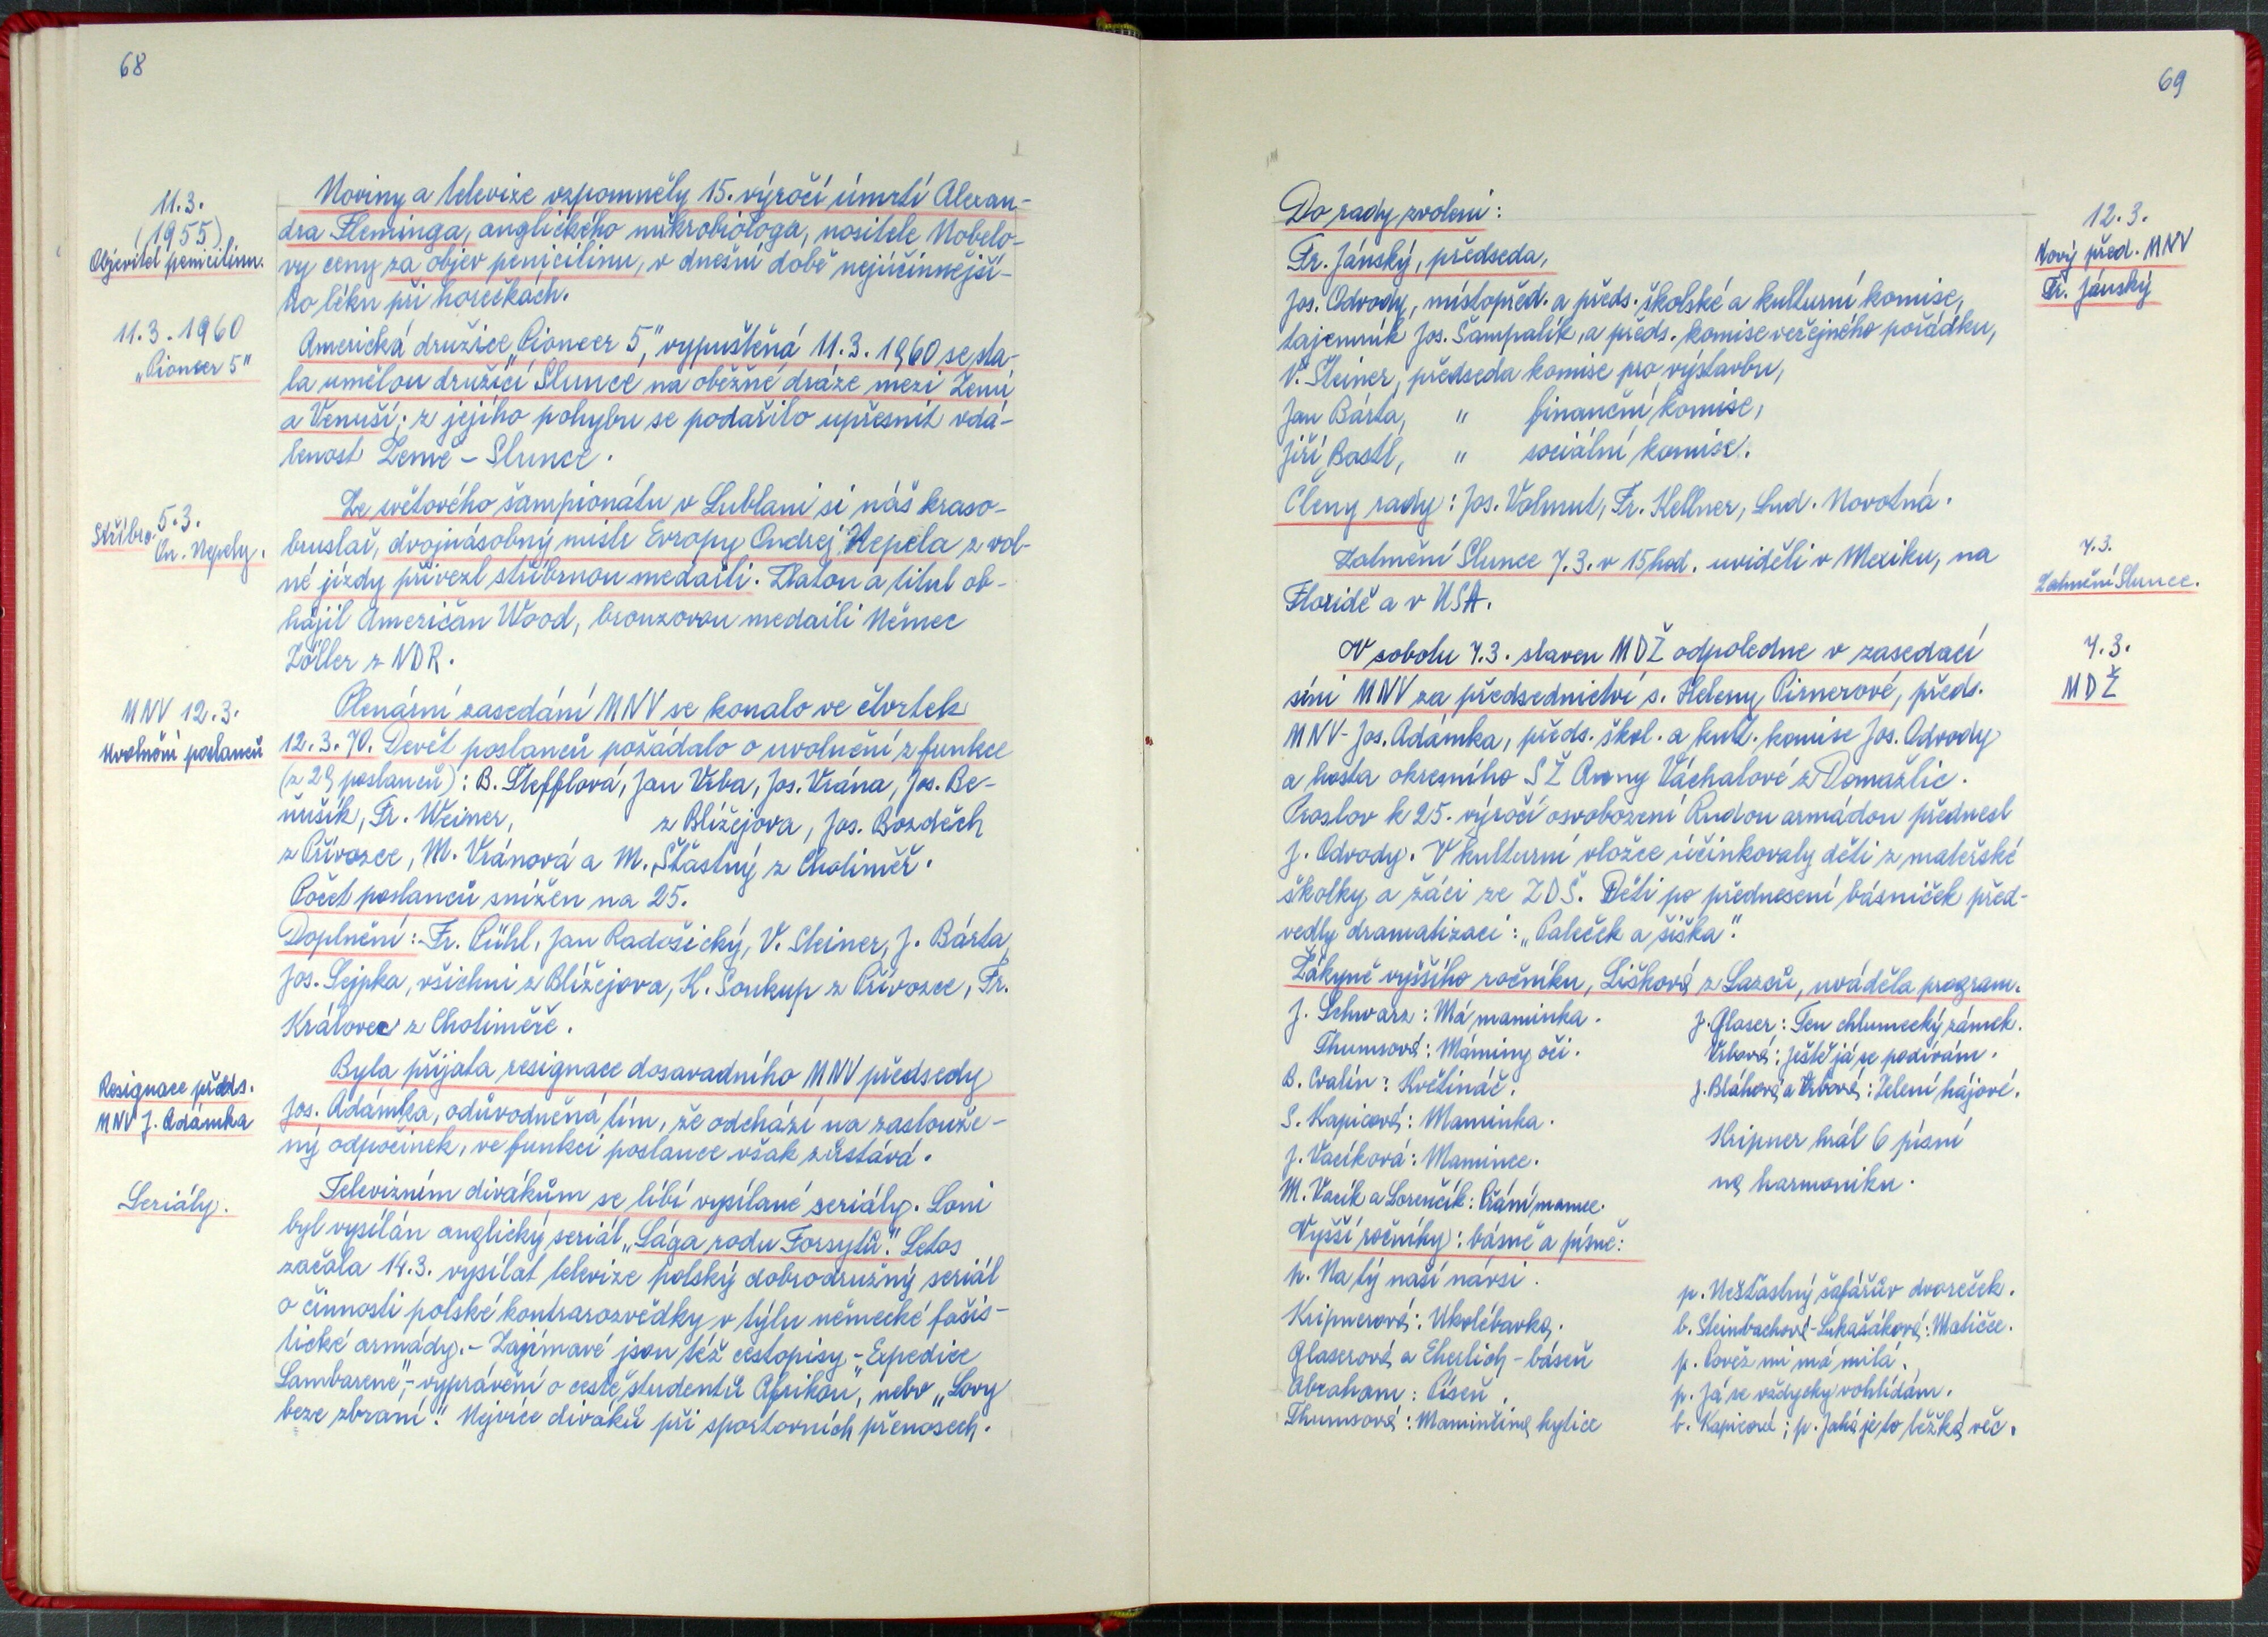 68
11.3.
(1955)
Objevitel penicilinu.
Noviny a televize vzpomněly 15. výročí úmrtí Alexan-
dra Fleminga, anglického mikrobiologa, nositele Nobelo-
vy ceny za objev penicilinu, v dnešní době nejúčinnější-
ho léku při horečkách.
11.3.1960
„Pioneer 5"
Americká družice „Pioneer 5," vypuštěná 11.3.1960 se sta-
la umělou družicí Slunce na oběžné dráze mezi Zemí
a Venuší; z jejího pohybu se podařilo upřesnit vdá-
lenost Země - Slunce.
5.3.
Stříbro On. Nepely.
Ze světového šampionátu v Lublani si náš kraso-
bruslař, dvojnásobný mistr Evropy Ondrej Nepela z vol-
né jízdy přivezl stříbrnou medaili. Zlatou a titul ob-
hájil Američan Wood, bronzovou medaili Němec
Zöller z NDR.
MNV 12.3.
Uvolnění poslanců
Plenární zasedání MNV se konalo ve čtvrtek
12.3.70. Devět poslanců požádalo o uvolnění z funkce
(z 29 poslanců): B. Štefflová, Jan Vrba, Jos. Vrána, Jos. Be-
ňušík, Fr. Weiner, z Blížejova, Jos. Bozděch
z Přívozce, M. Vránová a M. Šťastný z Choliměř.
Počet poslanců snížen na 25.
Doplnění: Fr. Pühl, Jan Radošický, V. Steiner, J. Bárta,
Jos. Sejpka, všichni z Blížejova, K. Soukup z Přívozce, Fr.
Královec z Choliměře.
Resignace předs.
MNV J. Adámka
Byla přijata resignace dosavadního MNV předsedy
Jos. Adámka, odůvodněná tím, že odchází na zaslouže-
ný odpočinek, ve funkci poslance však zůstává.
Seriály.
Televizním divákům se líbí vysílané seriály. Loni
byl vysílán anglický seriál „Sága rodu Forsytů." Letos
začala 14.3. vysílat televize polský dobrodružný seriál
o činnosti polské kontrarozvědky v týlu německé fašis-
tické armády. - Zajímavé jsou též cestopisy - „Expedice
Lambarene", - vyprávění o cestě studentů Afrikou", nebo „Lovy
beze zbraní." Nejvíce diváků při sportovních přenosech.
69
Do rady zvoleni:
12.3.
Nový před. MNV
Fr. Jánský
Fr. Jánský, předseda,
Jos. Odvody, místopřed. a předs. školské a kulturní komise,
tajemník Jos. Šampalík, a předs. komise veřejného pořádku,
V. Steiner, předseda komise pro výstavbu,
Jan Bárta, " finanční komise,
Jiří Bastl, " sociální komise.
Členy rady: Jos. Volmut, Fr. Kellner, Lud. Novotná.
7.3.
Zatmění Slunce.
Zatmění Slunce 7.3. v 15 hod. uviděli v Mexiku, na
Floridě a v USA.
7.3.
MDŽ
V sobotu 7.3. slaven MDŽ odpoledne v zasedací
síni MNV za předsednictví s. Heleny Pirnerové, předs.
MNV - Jos. Adámka, předs. škol. a kult. komise Jos. Odvody
a hosta okresního SŽ Anny Váchalové z Domažlic.
Proslov k 25. výročí osvobození Rudou armádou přednesl
J. Odvody. V kulturní vložce účinkovaly děti z mateřské
školky a žáci ze ZDŠ. Děti po přednesení básniček před-
vedly dramatizaci: „Paleček a šiška".
Žákyně vyššího ročníku, Lišková z Lazců, uváděla program.
J. Schwarz: Má maminka.
J. Glaser: Ten chlumecký zámek.
Thumsová: Máminy oči.
Vrbová: Ještě já se podívám.
B. Cvalín: Květináč.
J. Bláhová a Vrbová: Zelení hájové.
S. Kapicová: Maminka.
Kripner hrál 6 písní
J. Vacíková: Mamince.
na harmoniku.
M. Vacík a Lorenčík: Přání mamce.
Vyšší ročníky: básně a písně:
p. Na tý naší návsi.
p. Nešťastný šafářův dvoreček.
Kripnerová: Ukolébavka.
b. Steinbachová - Lukašáková: Matičce.
Glaserová a Eherlich - báseň
p. Pověz mi má milá.
Abraham: Píseň.
p. Já se vždycky vohlídám.
Thumsová: Maminčina kytice
b. Kapicová; p. Jaká je to těžká věc.